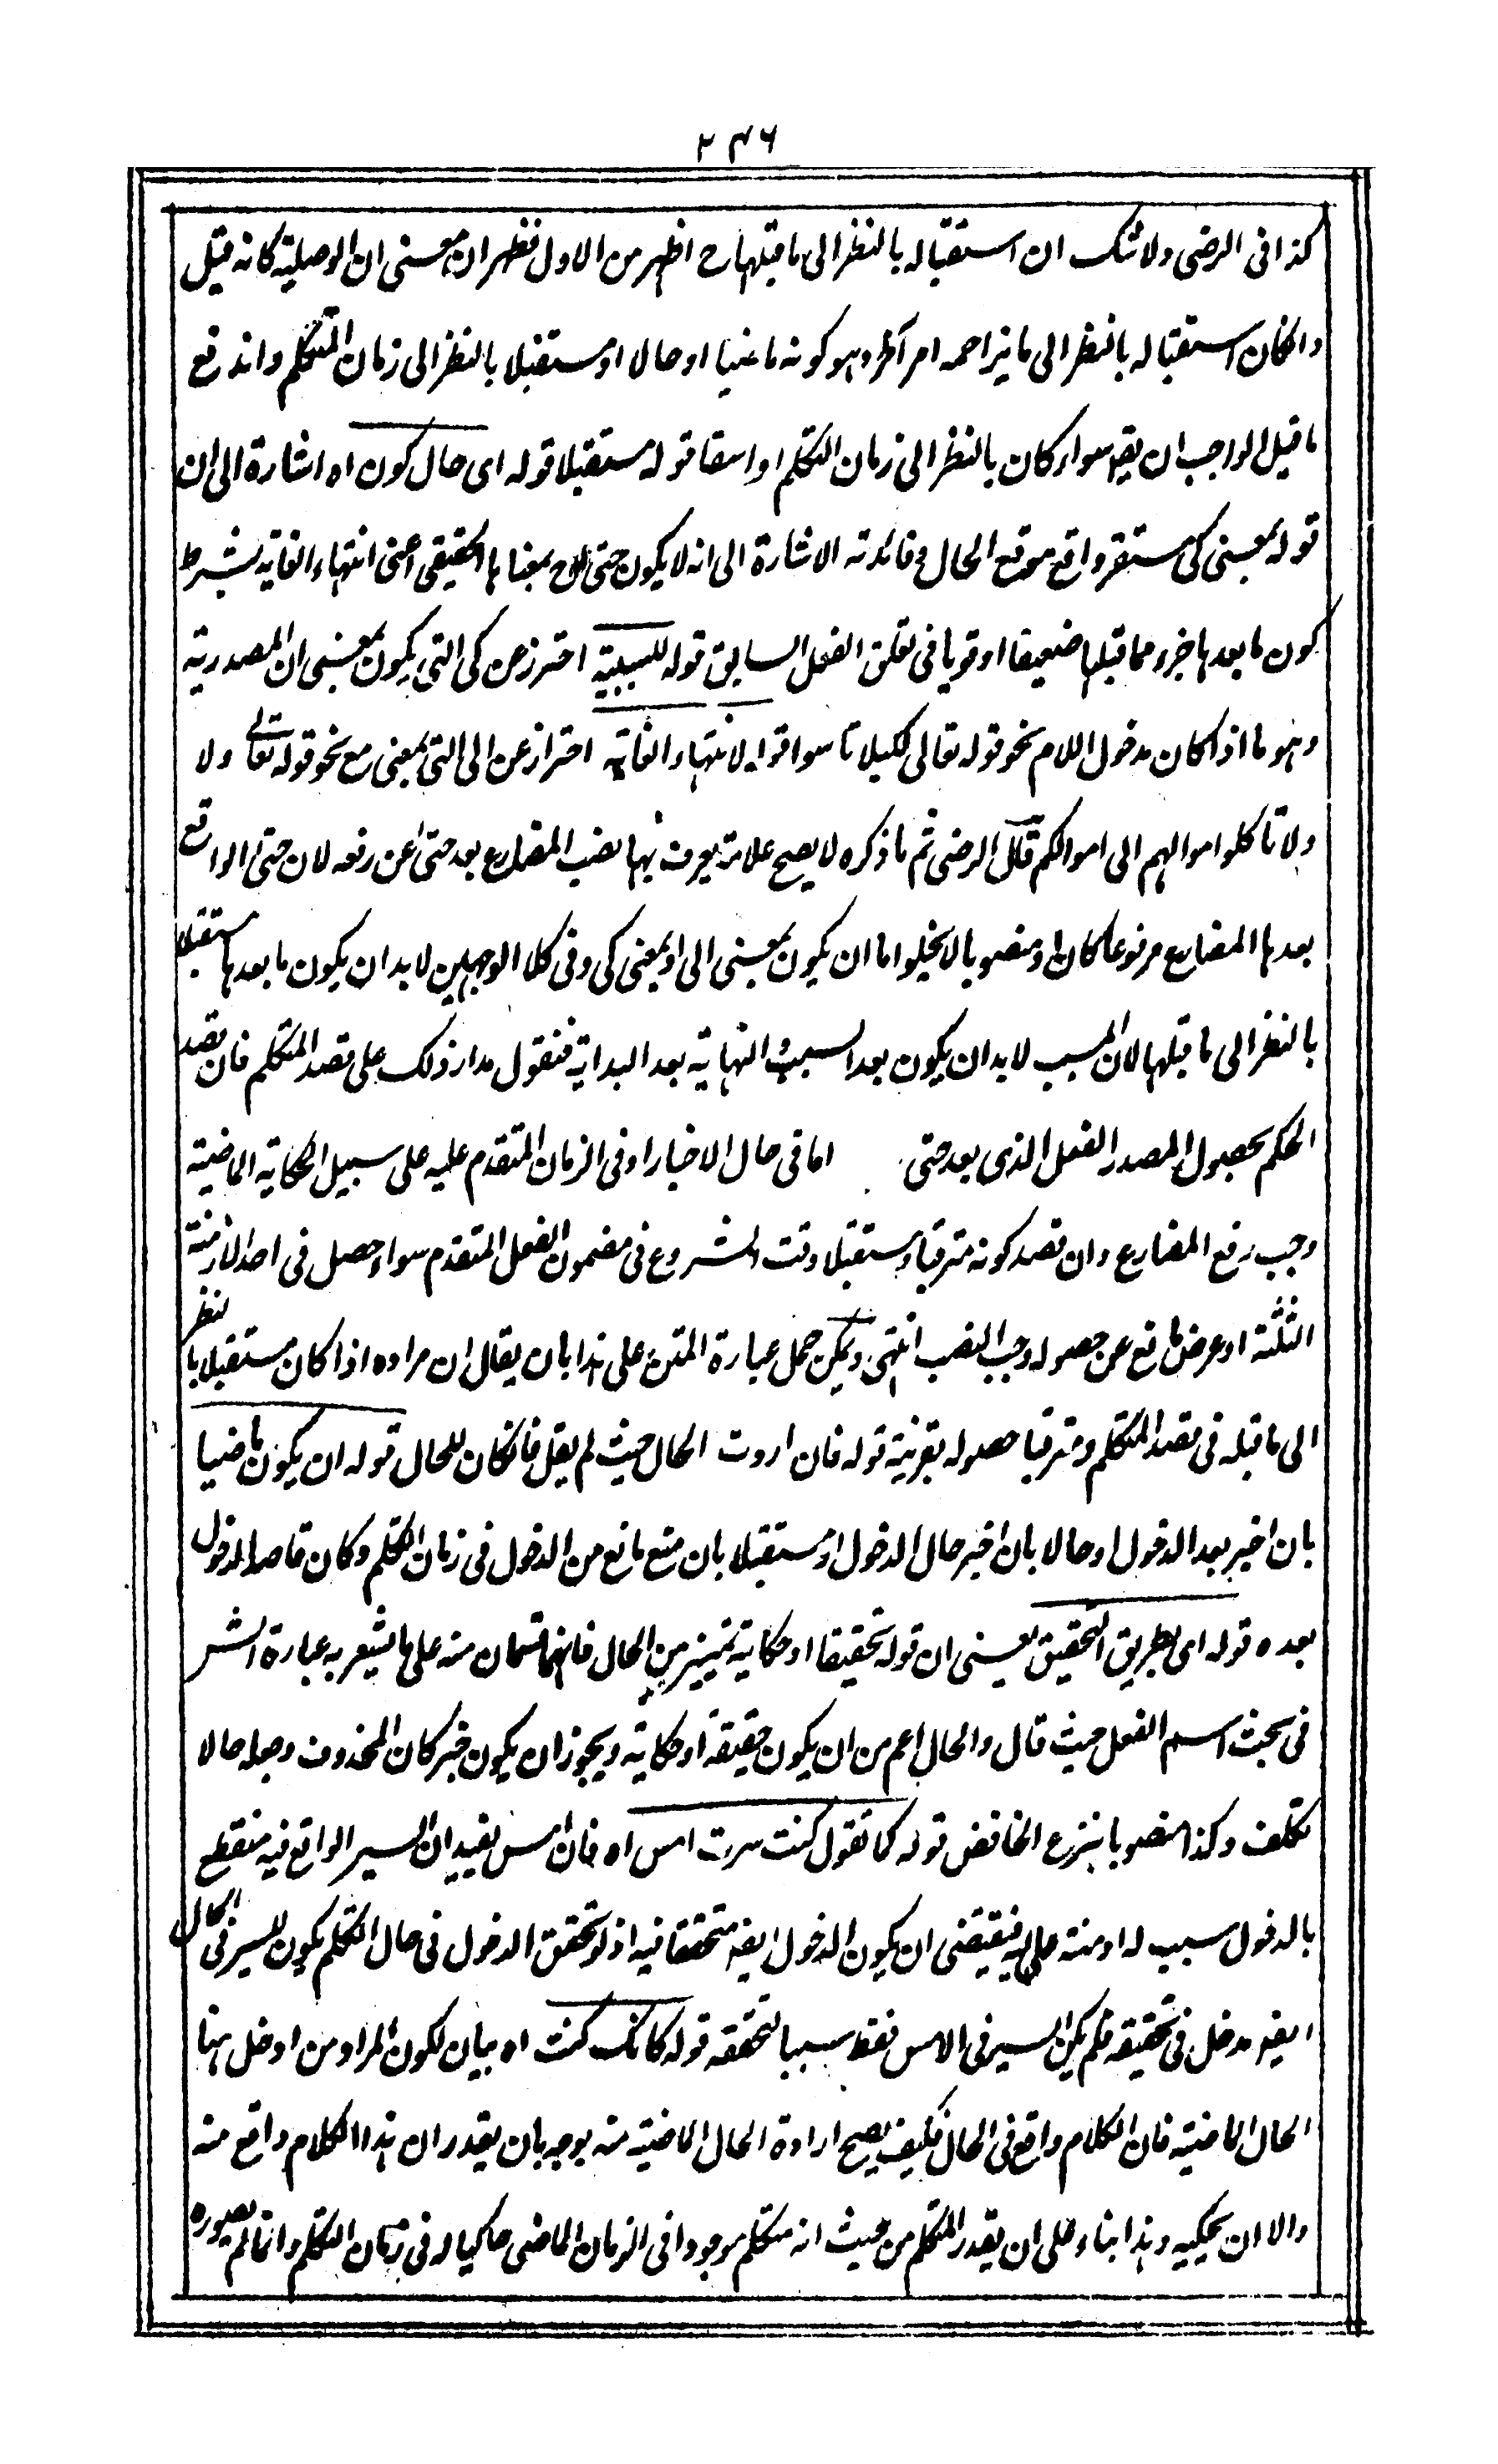 ٢٤٦
كذا فى الرضى ولا شك ان استقباله بالنظر الى ما قبلها ح اظهر من الاول فظهر ان معنى ان الوصلية كانه قيل
وانكان استقباله بالنظر الى ما يزاحمه امر آخر وهو كونه ماضيا او حالا او مستقبلا بالنظر الى زمان التكلم واندفع
ما قيل الواجب ان يقول سواء كان بالنظر الى زمان التكلم او اسقاط قوله مستقبلا قوله اى حال كون اه اشارة الى ان
قوله بمعنى كى مستقر واقع موقع الحال وفائدته الاشارة الى انه لا يكون حتى ح بمعناها الحقيقى اعنى انتهاء الغاية بشرط
كون ما بعدها جزء مما قبلها ضعيفا او قويا فى تعلق الفعل السابق قوله للسببية احترز عن كى التى يكون بمعنى ان المصدرية
وهو ما اذا كان مدخول اللام نحو قوله تعالى لكيلا تاسوا قوله لانتهاء الغاية احتراز عن الى التى بمعنى مع نحو قوله تعالى ولا
ولا تاكلوا اموالهم الى اموالكم قال الرضى ثم ما ذكره لا يصح علامة يعرف بها نصب المضارع بعد حتى عن رفعه لان حتى الواقع
بعدها المضارع مرفوعا كان او منصوبا لا يخلو اما ان يكون بمعنى الى او بمعنى كى وفى كلا الوجهين لا بد ان يكون ما بعدها مستقبلا
بالنظر الى ما قبلها لان المسبب لا بد ان يكون بعد السبب والنهاية بعد البداية فنقول مدار ذلك على قصد المتكلم فان قصد
الحكم بحصول المصدر الفعل الذى بعد حتى اما فى حال الاخبار او فى الزمان المتقدم عليه على سبيل الحكاية الماضية
وجب رفع المضارع وان قصد كونه مترقبا ومستقبلا وقت الشروع فى مضمون الفعل المتقدم سواء حصل فى احد الازمنة
الثلثة او عرض مانع عن حصوله وجب النصب انتهى ويمكن حمل عبارة المتن على هذا بان يقال ان مراده اذا كان مستقبلا بالنظر
الى ما قبله فى قصد المتكلم ومترقبا حصوله بقرينة قوله فان اردت الحال حيث لم يقل فانكان للحال قوله ان يكون ماضيا
بان اخبر بعد الدخول او حالا بان اخبر حال الدخول او مستقبلا بان منع مانع من الدخول فى زمان التكلم وكان قاصد الدخول
بعده قوله اى بطريق التحقيق يعنى ان قوله تحقيقا او حكاية تمييز من الحال فانهما قسمان منه على ما يشعر به عبارة الشر
فى بحث اسم الفعل حيث قال والحال اعم من ان يكون حقيقة او حكاية ويجوز ان يكون خبر كان المحذوف وجعله حالا
تكلف وكذا منصوبا بنزع الخافض قوله كما تقول كنت سرت امس اه فان امس يفيد ان السير الواقع فيه منقطع
بالدخول سبب له او منته اليه فيقتضى ان يكون الدخول ايضا متحققا فيه اذ لو تحقق الدخول فى حال التكلم يكون للسير فى الحال
ايضا مدخل فى تحقيقه فلم يكن السير فى الامس فقط سببا لتحققه قوله كانك كنت اه بيان لكون المراد من ادخل ههنا
الحال الماضية فان الكلام واقع فى الحال فكيف يصح ارادة الحال الماضية منه بوجه بان يقدر ان هذا الكلام واقع منه
والا ان يحكيه وهذا بناء على ان يقدر المتكلم من حيث انه متكلم موجودا فى الزمان الماضى حاكيا له فى زمان التكلم وانما لم يصوره